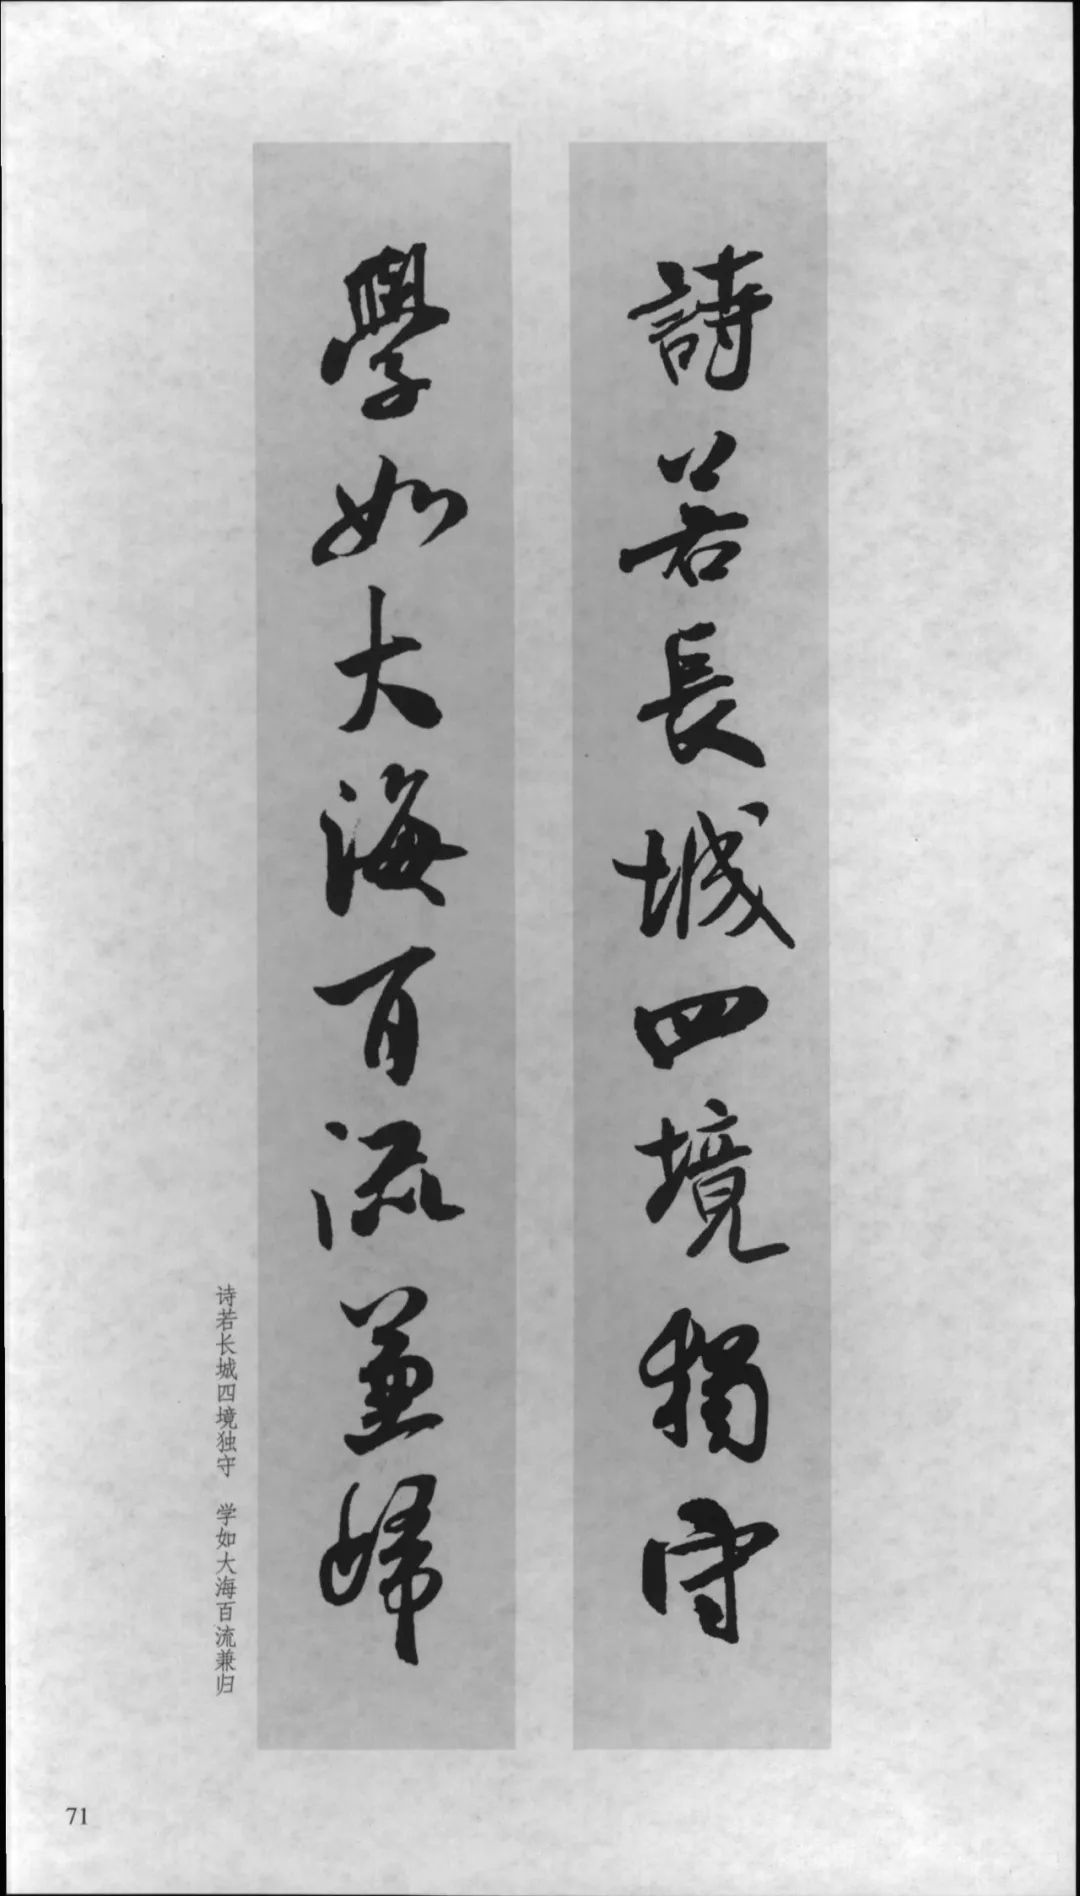 詩若長城四境獨守
學如大海百流兼歸
诗若长城四境独守 学如大海百流兼归
71